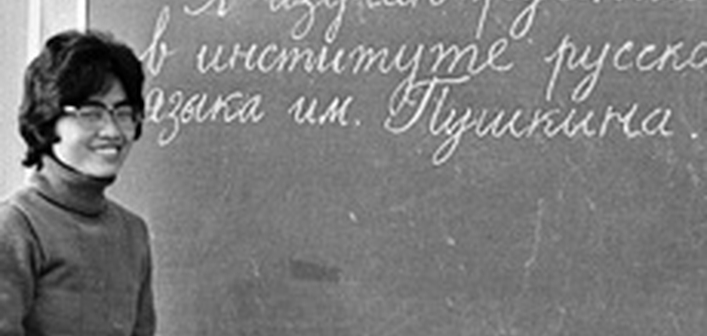 Я изучаю
в институте русско
языка им. Пушкина.